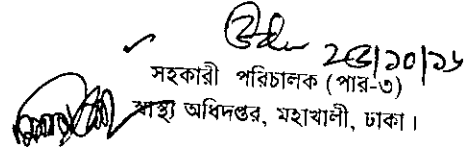 ২৫/১০/১৬
সহকারী পরিচালক (পার-৩)
স্বাস্থ্য অধিদপ্তর, মহাখালী, ঢাকা।